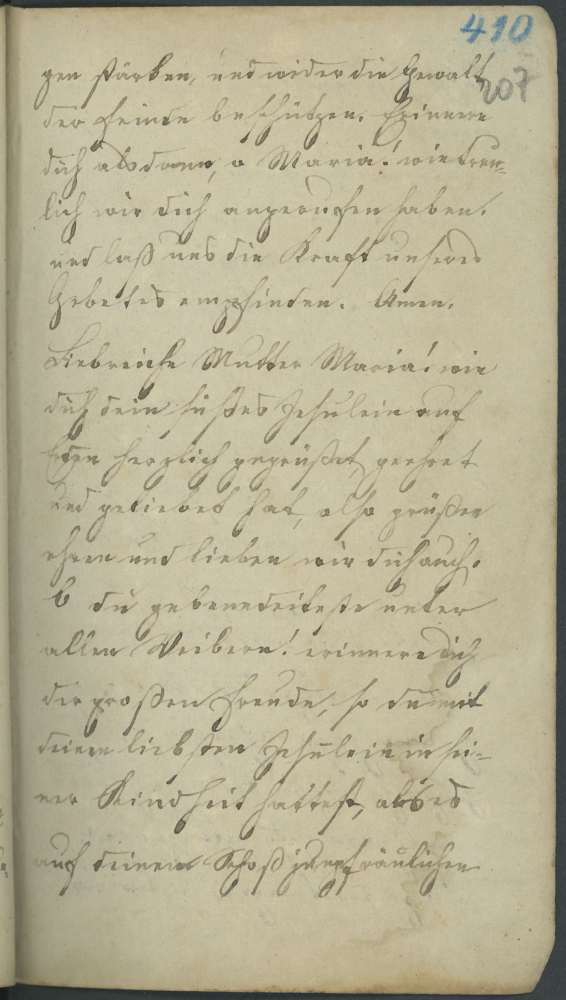 410
207
gen stärken, und wider die Gewalt
der Feinde beschützen. Erinnere
dich alsdann, o Maria! wie treu-
lich wir dich angerufen haben.
und laß uns die Kraft unseres
Gebetes empfinden. Amen.
Liebreiche Mutter Maria! wie
dich dein süßes Jesulein auf
Erden herzlich gegrüßet, geehret
und geliebet hat, also grüßen
ehren und lieben wir dich auch.
O du gebenedeiteste unter
allen Weibern! erinnere dich
der großen Freude, so du mit
deinem liebsten Jesulein in sei-
ner Kindheit hattest, als es
auf deinem Schoß jungfräulichen